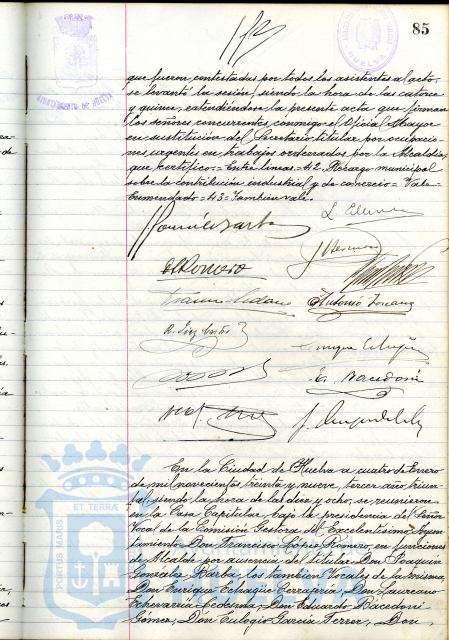 85
AYUNTAMIENTO DE HUELVA
HUELVA
que fueron contestadas por todos los asistentes al acto,
se levantó la sesión, siendo la hora de las catorce
y quince, extendiéndose la presente acta que firman
los señores concurrentes, conmigo el Oficial Mayor
en sustitución del Secretario titular por ocupacio-
nes urgentes en trabajos ordenados por la Alcaldía,
que certifico = Entre líneas = 42 Recargo municipal
sobre la contribución industrial y de comercio = Vale
Enmendado = 43 = También vale.
Romero
Antonio
E. Macedoni
En la Ciudad de Huelva a cuatro de Enero
de mil novecientos treinta y nueve, tercer año triun-
fal, siendo la hora de las diez y ocho, se reunieron
en la Casa Capitular, bajo la presidencia del Señor
Vocal de la Comisión Gestora del Excelentísimo Ayun-
tamiento Don Francisco López Romero, en funciones
de Alcalde por ausencia del titular Don Joaquín
González Barba, los también Vocales de la misma,
Don Enrique Echaque Don Laureano
Echevarría Ledesma, Don Eduardo Macedoni
Gómez, Don Eulogio García Ferrer, Don
PORTUS MARIS ET TERRAE